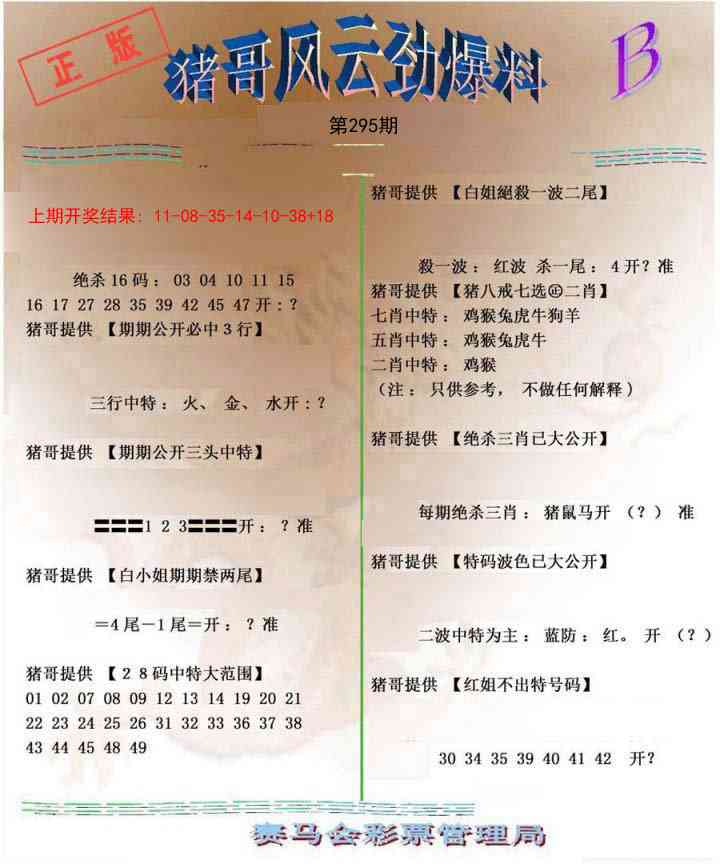 正版
猪哥风云劲爆料
B
第295期
上期开奖结果: 11-08-35-14-10-38+18
绝杀16码： 03 04 10 11 15
16 17 27 28 35 39 42 45 47开:？
猪哥提供 【期期公开必中3行】
三行中特： 火、 金、 水开:？
猪哥提供 【期期公开三头中特】
〓〓〓1 2 3〓〓〓开： ？准
猪哥提供 【白小姐期期禁两尾】
＝4尾－1尾＝开： ？准
猪哥提供 【２８码中特大范围】
01 02 07 08 09 12 13 14 19 20 21
22 23 24 25 26 31 32 33 36 37 38
43 44 45 48 49
猪哥提供 【白姐絕殺一波二尾】
殺一波： 红波 杀一尾： 4开？准
猪哥提供 【猪八戒七选㊣二肖】
七肖中特： 鸡猴兔虎牛狗羊
五肖中特： 鸡猴兔虎牛
二肖中特： 鸡猴
(注： 只供参考， 不做任何解释)
猪哥提供 【绝杀三肖已大公开】
每期绝杀三肖： 猪鼠马开 （？） 准
猪哥提供 【特码波色已大公开】
二波中特为主： 蓝防： 红。 开 （？）
猪哥提供 【红姐不出特号码】
30 34 35 39 40 41 42 开？
赛马会彩票管理局